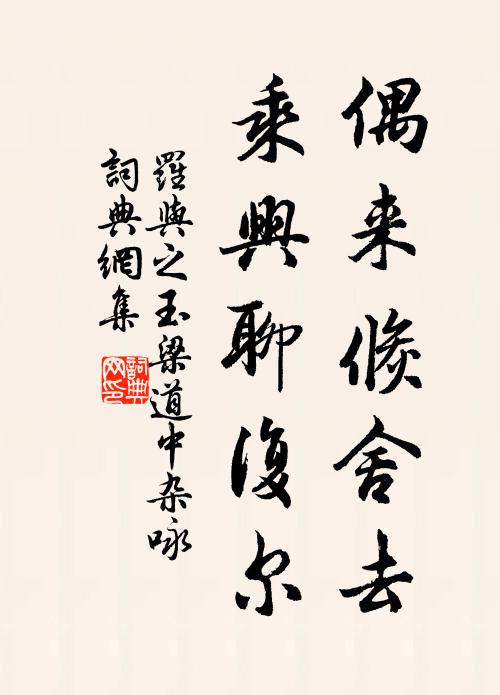 偶来倏舍去
乘興聊復尔
羅與之玉梁道中杂咏
詞典網集
詞典網印